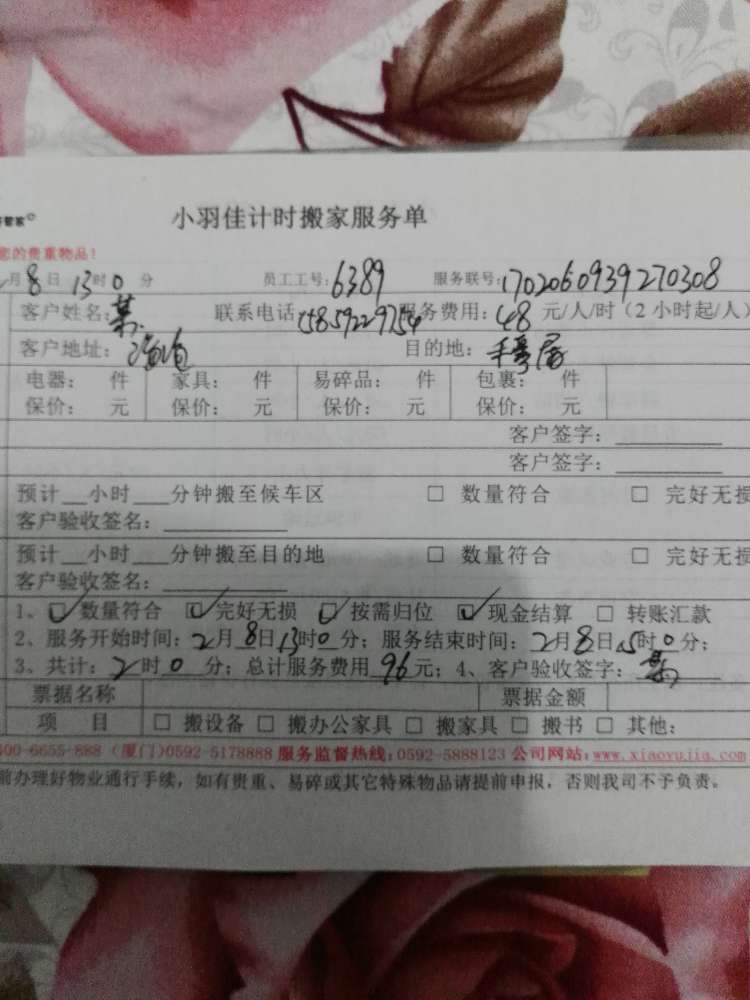 管家©
小羽佳计时搬家服务单
您的贵重物品！
月8日13时0分 员工工号：6389 服务联号：1702060939270308
客户姓名： 联系电话：15859229754 服务费用：48元/人/时（2小时起/人）
客户地址： 目的地：
电器： 件 家具： 件 易碎品： 件 包裹： 件
保价： 元 保价： 元 保价： 元 保价： 元
客户签字：
客户签字：
预计___小时___分钟搬至候车区 □ 数量符合 □ 完好无损
客户验收签名：
预计___小时___分钟搬至目的地 □ 数量符合 □ 完好无损
客户验收签名：
1、☑数量符合 ☑完好无损 ☑按需归位 ☑现金结算 □ 转账汇款
2、服务开始时间：2月8日13时0分；服务结束时间：2月8日15时0分；
3、共计：2时0分；总计服务费用96元；4、客户验收签字：
票据名称 票据金额
项 目 □ 搬设备 □ 搬办公家具 □ 搬家具 □ 搬书 □ 其他：
400-6655-888（厦门）0592-5178888 服务监督热线：0592-5888123 公司网站：www.xiaoyujia.com
前办理好物业通行手续，如有贵重、易碎或其它特殊物品请提前申报，否则我司不予负责。